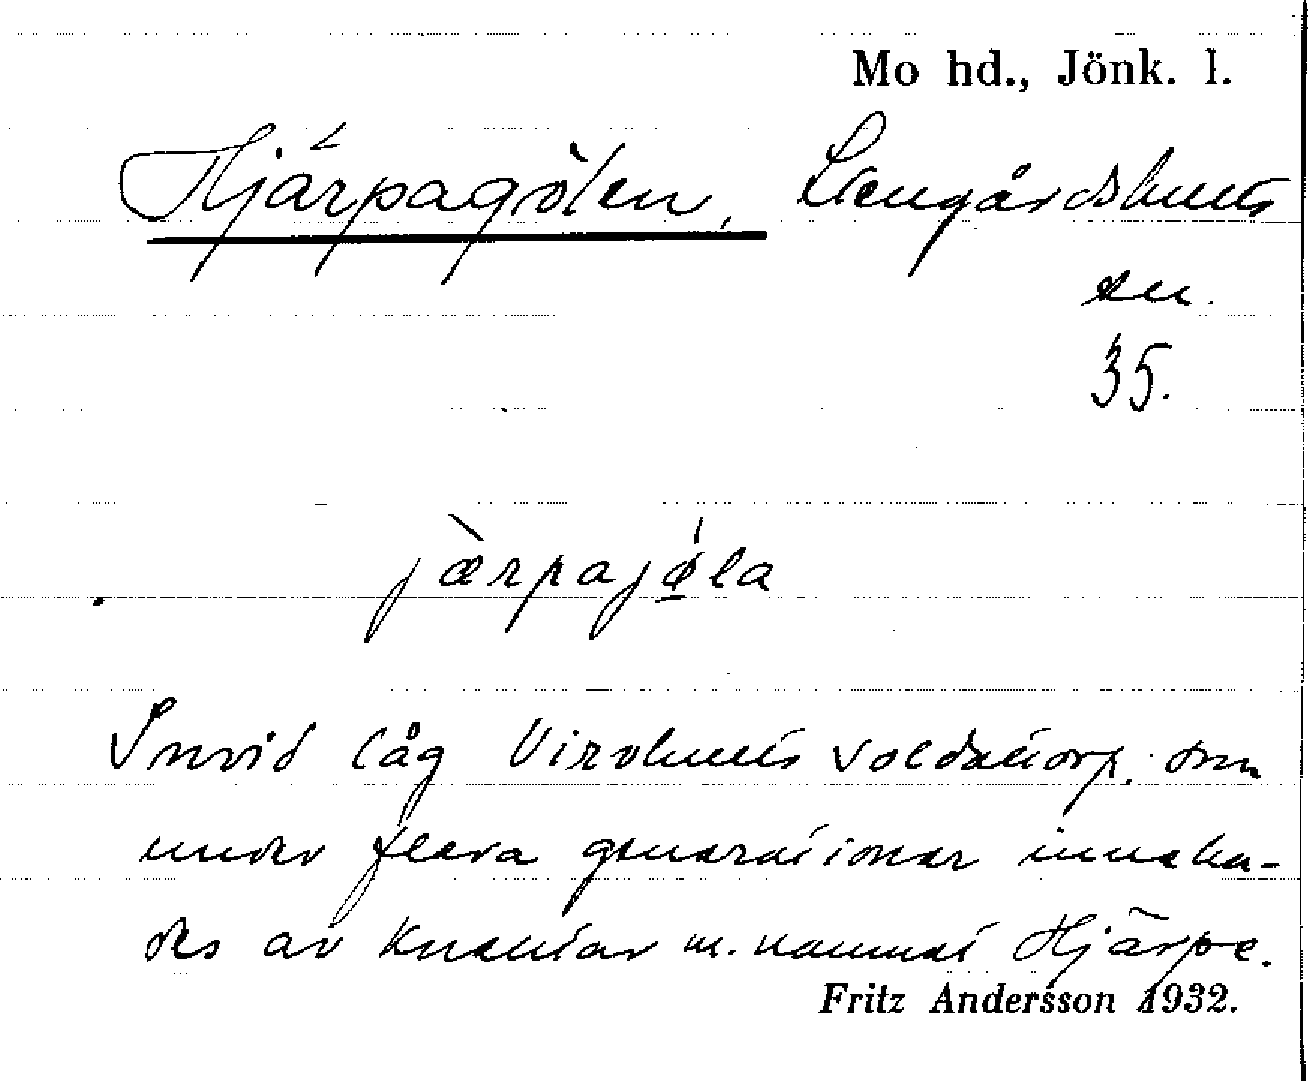 Mo hd., Jönk. l.
Hjärpagölen, Stengårdshults
sn.
35.
jærpajø̱la
Invid låg Virshults soldattorp, som
under flera generationer inneha-
des av knektar m. namnet Hjärpe.
Fritz Andersson 1932.